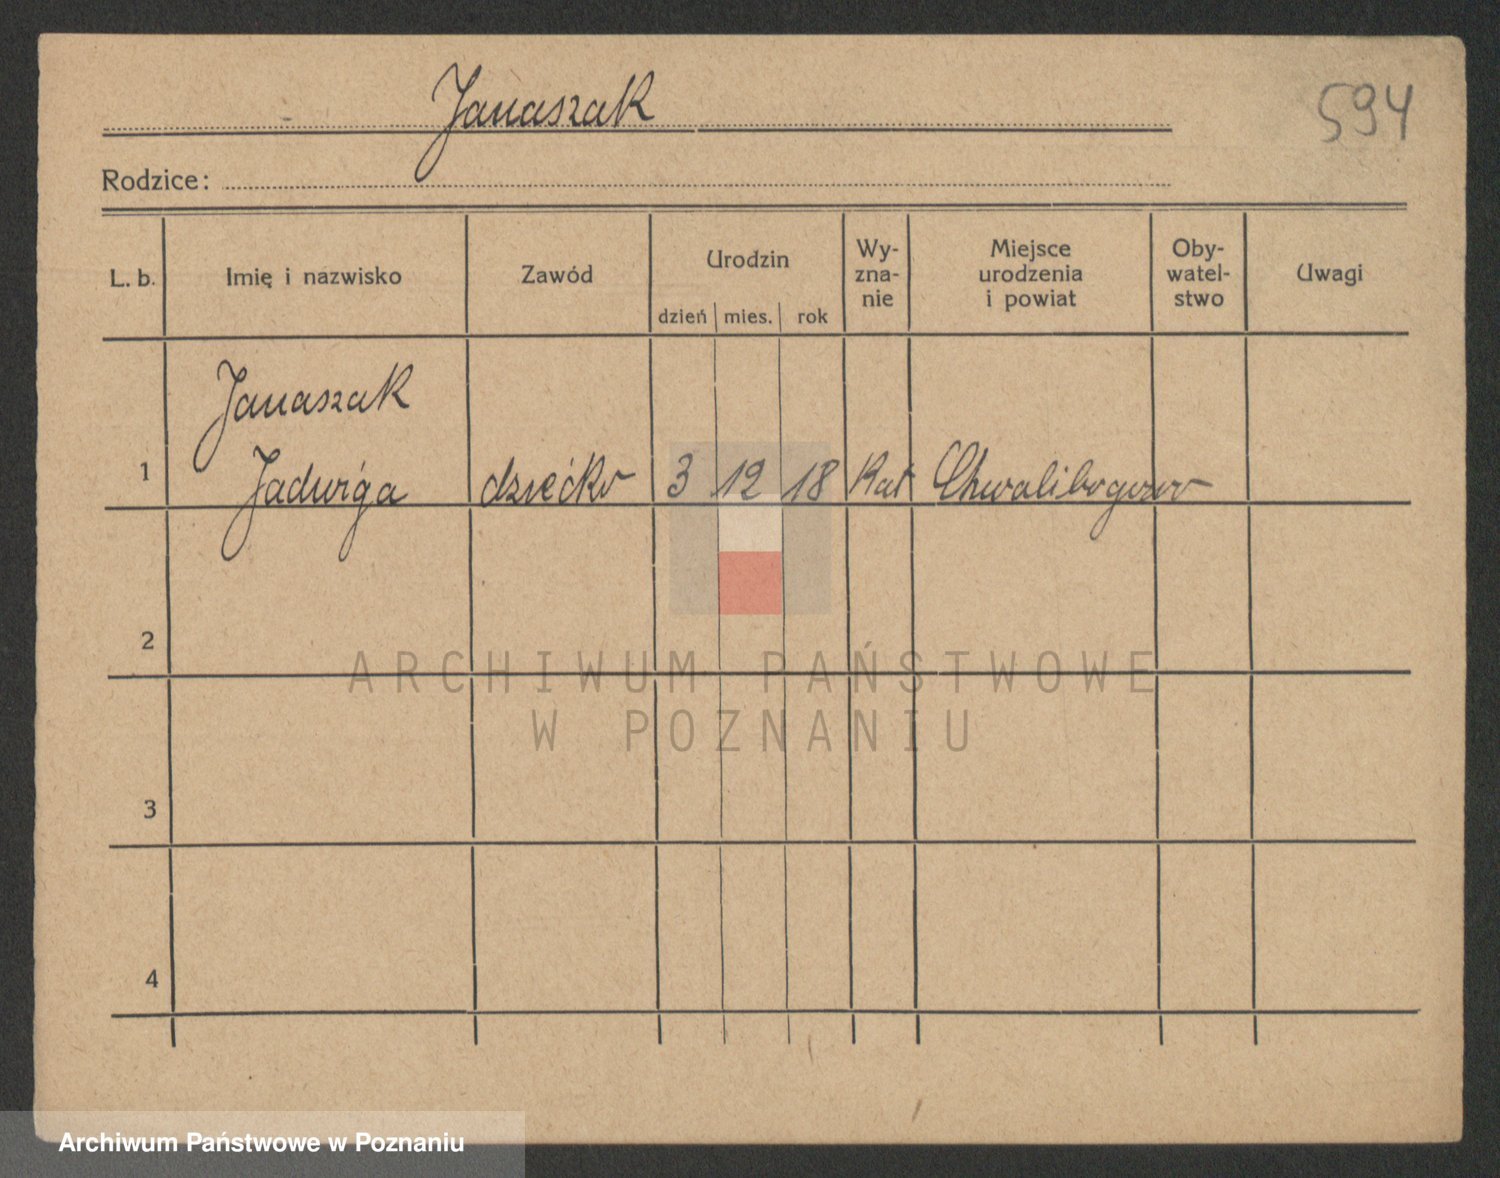 Janaszak
594
Rodzice:
L. b. Imię i nazwisko Zawód Urodzin dzień mies. rok Wy-zna-nie Miejsce urodzenia i powiat Oby-watel-stwo Uwagi
Janaszak
1 Jadwiga dziecko 3 12 18 Kat Chwalibogowo
2
ARCHIWUM PAŃSTWOWE
W POZNANIU
3
4
Archiwum Państwowe w Poznaniu